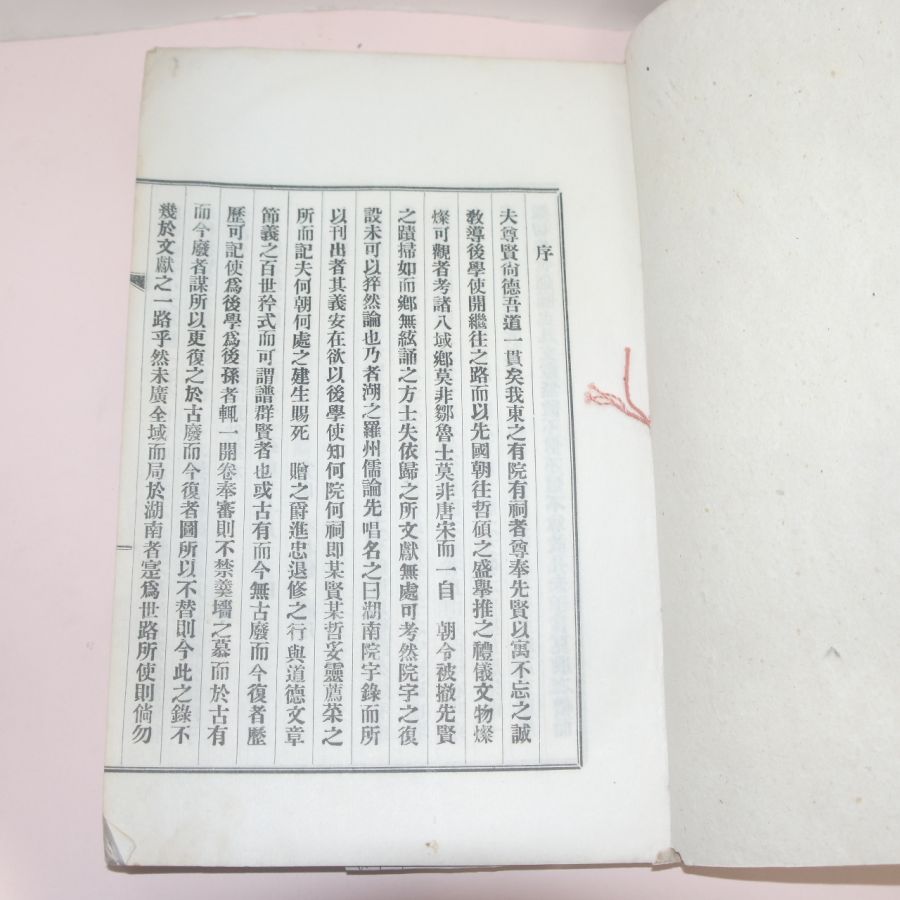 序
夫尊賢尙德吾道一貫矣我東之有院有祠者尊奉先賢以寓不忘之誠
敎導後學使開繼往之路而以先國朝往哲碩之盛擧推之禮儀文物燦
燦可觀者考諸八域鄕莫非鄒魯士莫非唐宋而一自　朝令被撤先賢
之蹟掃如而鄕無絃誦之方士失依歸之所文獻無處可考然院宇之復
設未可以猝然論也乃者湖之羅州儒論先唱名之曰湖南院宇錄而所
以刊出者其義安在欲以後學使知何院何祠即某賢某哲妥靈薦菜之
所而記夫何朝何處之建生賜死　贈之爵進忠退修之行與道德文章
節義之百世矜式而可謂譜群賢者也或古有而今無古廢而今復者歷
歷可記使爲後學爲後孫者輒一開卷奉審則不禁羹墻之慕而於古有
而今廢者謀所以更復之於古廢而今復者圖所以不替則今此之錄不
幾於文獻之一路乎然未廣全域而局於湖南者寔爲世路所使則倘勿